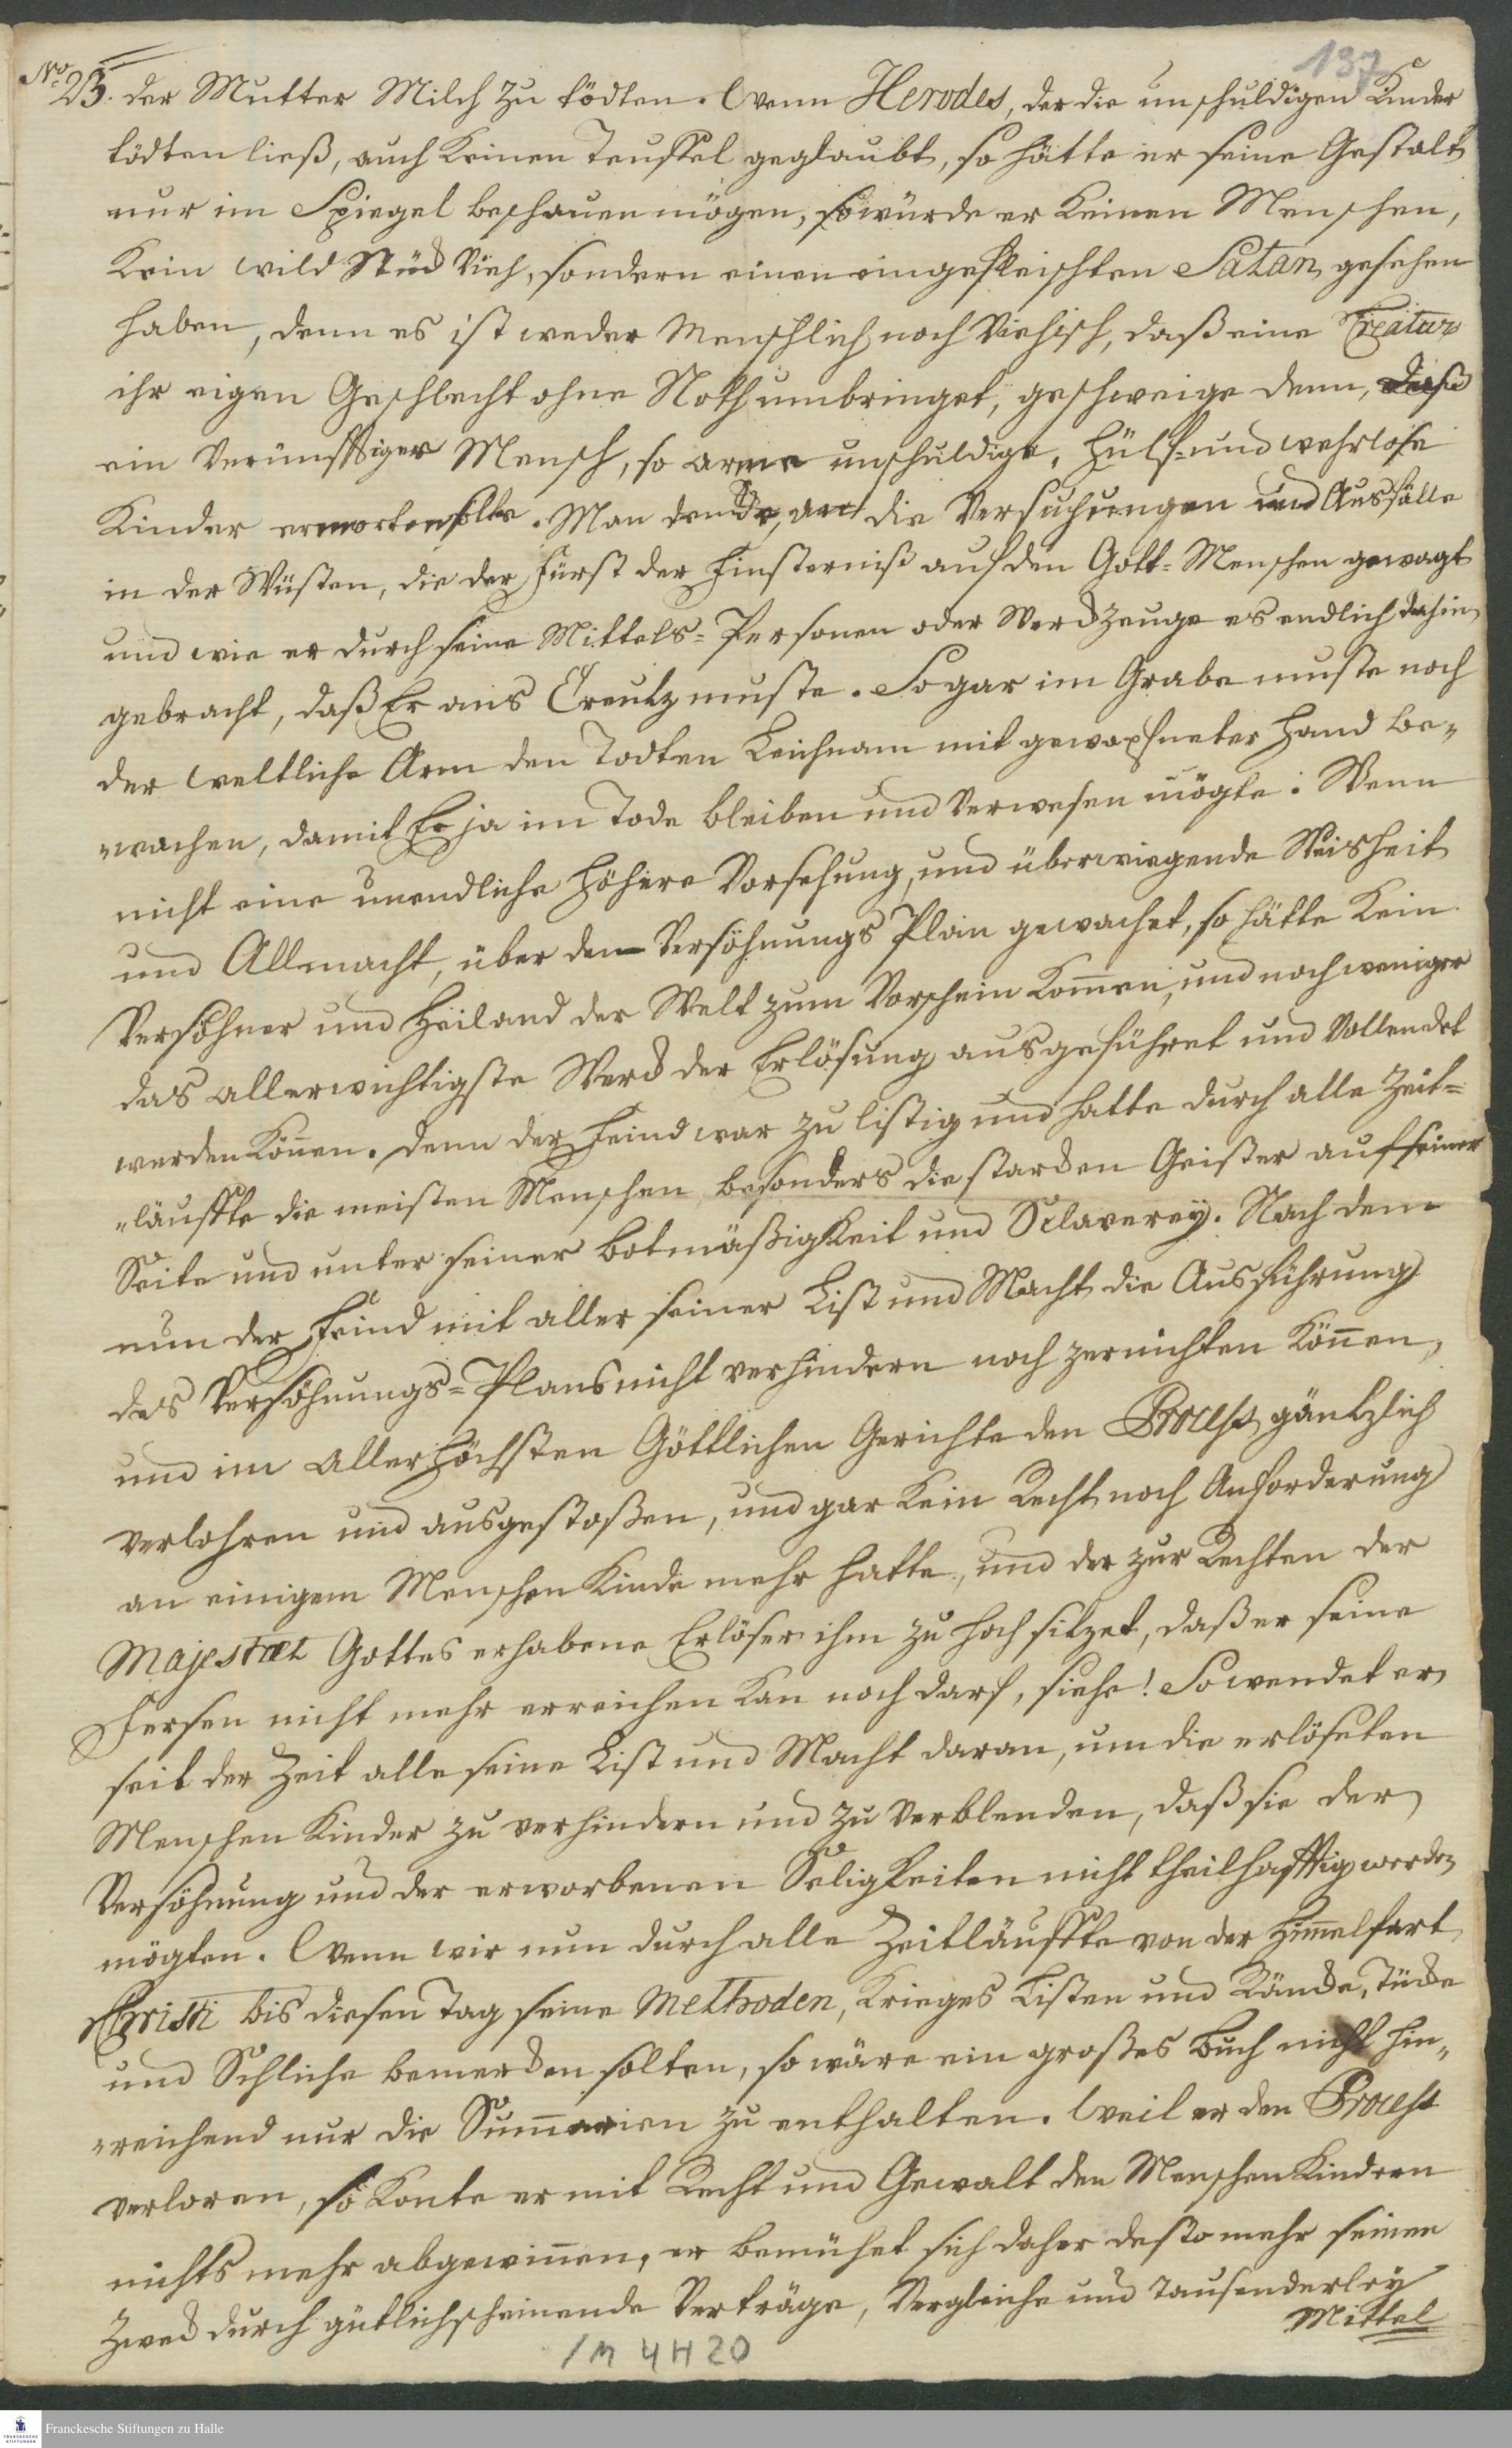 137
No. 23. der Mutter Milch zu tödten. Wenn Herodes, der die unschuldigen Kinder
tödten ließ, auch keinen Teuffel geglaubt, so hätte er seine Gestalt
nur im Spiegel beschauen mögen, so würde er keinen Menschen,
kein wild Stück Vieh, sondern einen eingefleischten Satan gesehen
haben, denn es ist weder Menschlich noch Viehisch, daß eine Creatur
ihr eigen Geschlecht ohne Noth umbringet, geschweige denn, daß
ein Vernünfftiger Mensch, so arme unschuldige, hülf- und wehrlose
Kinder ermorten solte. Man dencke, an die Versuchungen und Ausfälle
in der Wüsten, die der Fürst der Finsterniß auf den Gott-Menschen gewagt
und wie er durch seine Mittels-Personen oder Werckzeuge es endlich dahin
gebracht, daß Er ans Creutz muste. So gar im Grabe muste noch
der weltliche Arm den Todten Leichnam mit gewapfneter Hand be„
„wachen, damit Er ja im Tode bleiben und Verwesen mögte. Wenn
nicht eine unendliche höhere Vorsehung, und überwiegende Weisheit
und Allmacht, über den Versöhnungs Plan gewachet, so hätte kein
Versöhner und Heiland der Welt zum Vorschein kom̄en, und noch weniger
das allerwichtigste Werck der Erlösung ausgeführet und Vollendet
werden kön̄en. Denn der Feind war zu listig und hatte durch alle Zeit=
„läuffte die meisten Menschen besonders die starcken Geister auf seiner
Seite und unter seiner Botmäßigkeit und Sclaverey. Nach dem
nun der Feind mit aller seiner List und Macht die Ausführung
des Versöhnungs-Plans nicht verhindern noch zernichten kön̄en,
und im Allerhöchsten Göttlichen Gerichte den Process gäntzlich
verlohren und ausgestoßen, und gar kein Recht noch Anforderung
an einigem Menschen Kinde mehr hatte, und der zur Rechten der
Majestæt Gottes erhabene Erlöser ihm zu hoch sitzet, daß er seine
Fersen nicht mehr erreichen kan noch darf, siehe! So wendet er
seit der Zeit alle seine List und Macht daran, um die erlöseten
Menschen Kinder zu verhindern und zu Verblenden, daß sie der
Versöhnung und der erworbenen Seligkeiten nicht theilhafftig werden
mögten. Wenn wir nun durch alle Zeitläuffte von der Him̄elfart
Christi bis diesen Tag seine Methoden, Krieges Listen und Räncke, Tücke
und Schliche bemercken solten, so wäre ein großes Buch nicht hin„
„reichend nur die Sum̄arien zu enthalten. Weil er den Process
verloren, so konte er mit Recht und Gewalt den Menschen Kindern
nichts mehr abgewin̄en, er bemühet sich daher desto mehr seinen
Zweck durch gütlich scheinende Verträge, Vergleiche und Tausenderley
Mittel
1M 4H 20
Franckesche Stiftungen zu Halle